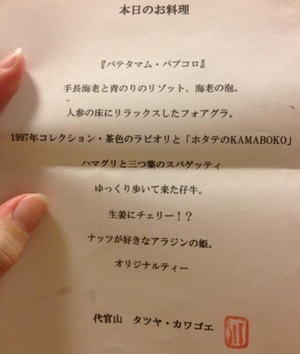 本日のお料理
『パテタマム・パプコロ』
手長海老と青のりのリゾット、海老の泡。
人参の床にリラックスしたフォアグラ。
1997年コレクション・茶色のラビオリと「ホタテのKAMABOKO」
ハマグリと三つ葉のスパゲッティ
ゆっくり歩いて来た仔牛。
生姜にチェリー！？
ナッツが好きなアラジンの姫。
オリジナルティー
代官山　タツヤ・カワゴエ